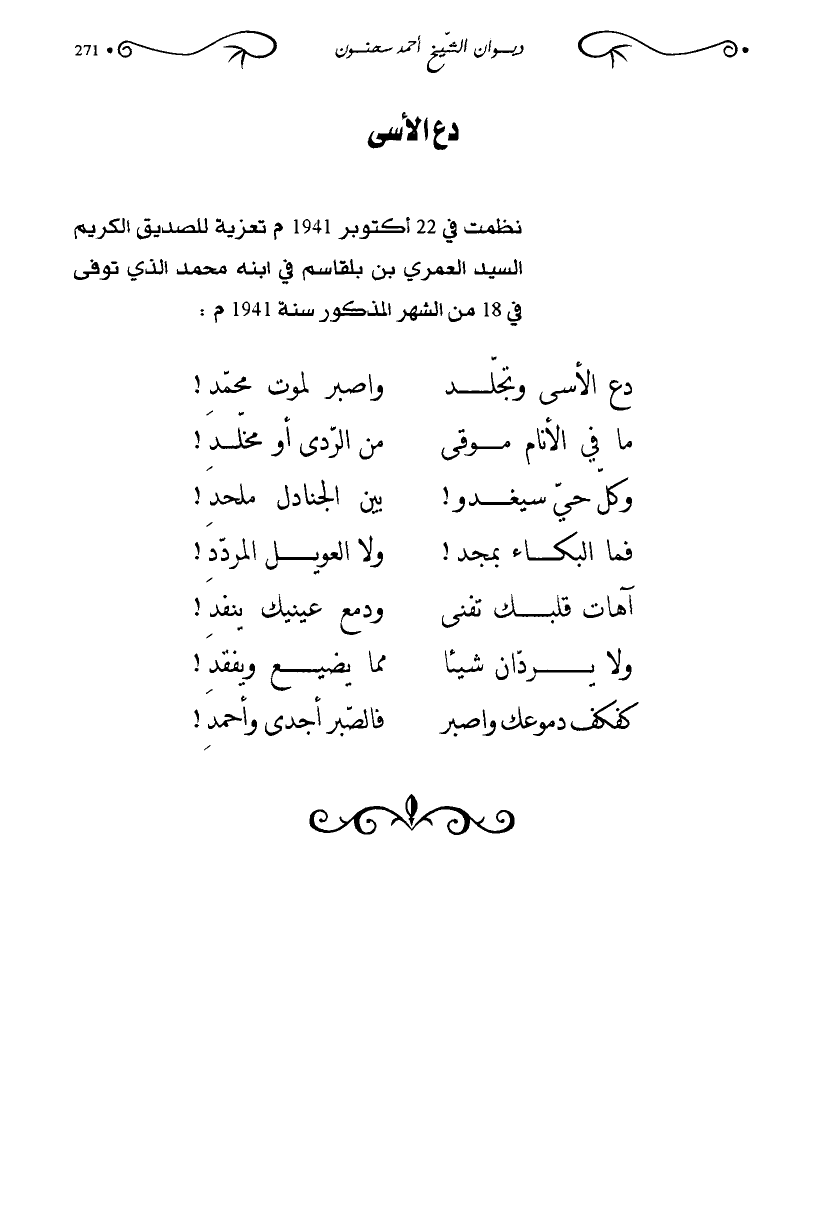 ديوان الشّيخ أحمد سحنون 271
دع الأسى
نظمت في 22 أكتوبر 1941 م تعزية للصديق الكريم
السيد العمري بن بلقاسم في ابنه محمد الذي توفى
في 18 من الشهر المذكور سنة 1941 م :
دع الأسى وتجلّد واصبر لموت محمّدِ !
ما في الأنام موقى من الرّدى أو مخلّدِ !
وكلّ حيّ سيغدو ! بين الجنادل ملحدِ !
فما البكاء بمجد ! ولا العويل المردّدِ !
آهات قلبك تفنى ودمع عينيك ينفدِ !
ولا يردّان شيئا مما يضيع ويفقدِ !
كفكف دموعك واصبر فالصّبر أجدى وأحمدِ !